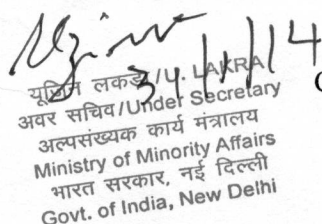 यूजिन लकड़ा/U. LAKRA
अवर सचिव/Under Secretary
अल्पसंख्यक कार्य मंत्रालय
Ministry of Minority Affairs
भारत सरकार, नई दिल्ली
Govt. of India, New Delhi